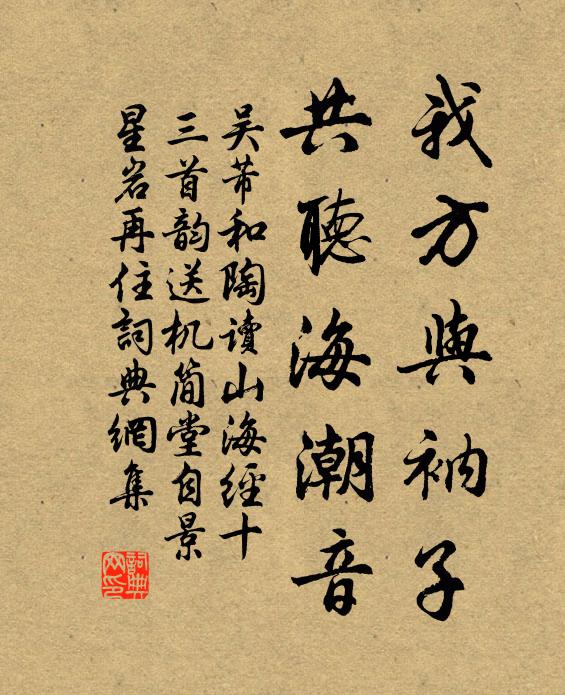 我方與衲子
共聽海潮音
吴芾和陶读山海經十
三首韵送机简堂自景
星岩再住詞典網集
詞典
网印